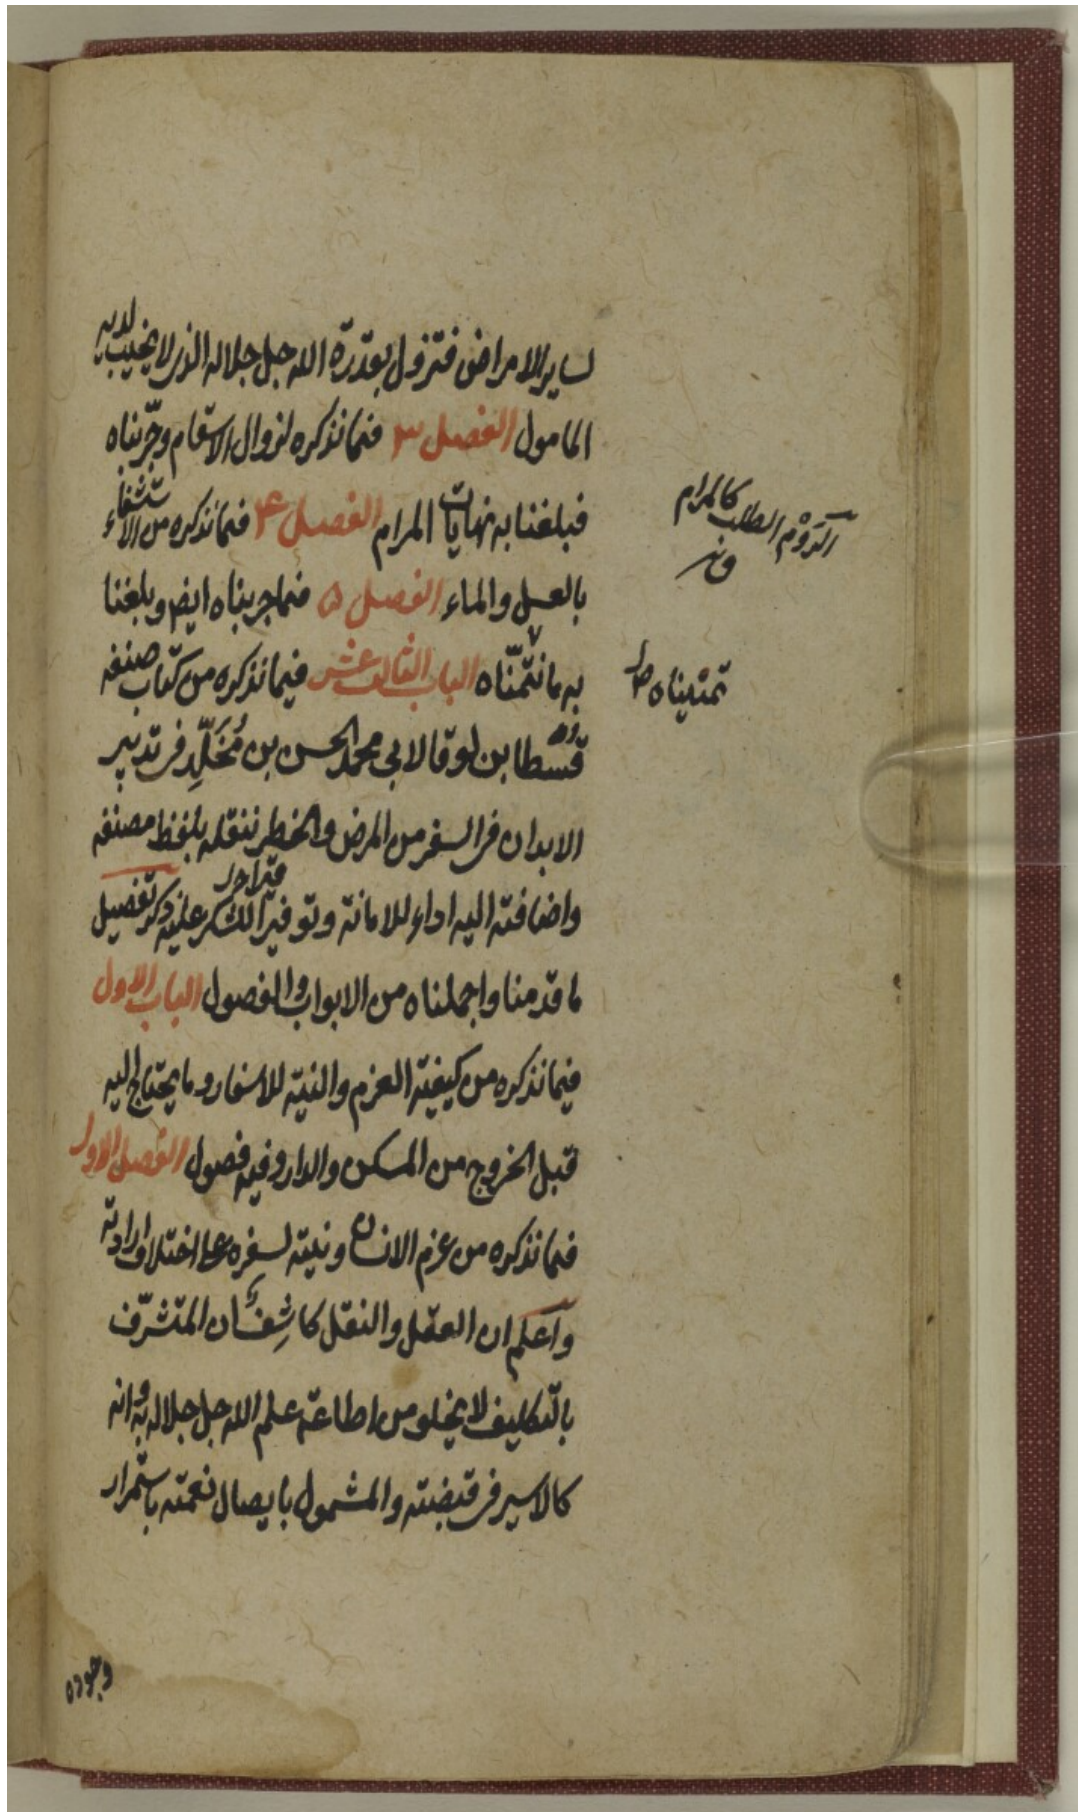 لساير الامراض فتزول بقدرة الله جل جلاله الذى لا يخيب لديه
المامول الفصل ٣ فيما نذكره لزوال الاسقام وجرّبناه
فبلغنا به نهايات المرام الفصل ۴ فيما نذكره من الاستشفاء
بالعسل والماء الفصل ۵ فيما جربناه ايضا وبلغنا
به ما نتمنّاه الباب الثالث عشر فيما نذكره من كتاب صنفه
قسطا بن لوقا لابى محمد الحسن بن مُخَلَّد فى تدبير
الابدان فى السفر من المرض والخطر ننقله بلفظ مصنفه
واضافته اليه اداء للامانة وتوفير الشكر عليه ذكر تفصيل
ما قدمنا واجملناه من الابواب والفصول الباب الاول
فيما نذكره من كيفية العزم والنية للاسفار وما يحتاج اليه
قبل الخروج من المسكن والدار وفيه فصول الفصل الاول
فيما نذكره من عزم الانسان ونيته لسفره على اختلاف ارادته
واعلم ان العقل والنقل كاشِفان ان المتشرّف
بالتكليف لا يخلو من اطاعة علم الله جل جلاله به وانه
كالاسير فى قبضته والمشمول بايصال نعمته باستمرار
وجوده
الرَوْم الطلب كالمرام
تمنيناه